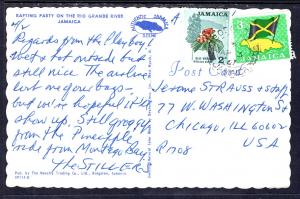 RAFTING PARTY ON THE RIO GRANDE RIVER
JAMAICA
JAMAICA
3d
JAMAICA
4/2
Regards from the Playboy!
Wet & hot outside but
still nice. The airline
lost my bags -
but we're hopeful it'll
show up. Still groggy
from the Pineapple
ride from Montego Bay.
The STILLER
Post Card
Jerome Strauss & staff
77 W. WASHINGTON St
Chicago, ILL 60602
USA
R 1708
Pub. by The Novelty Trading Co., Ltd., Kingston, Jamaica